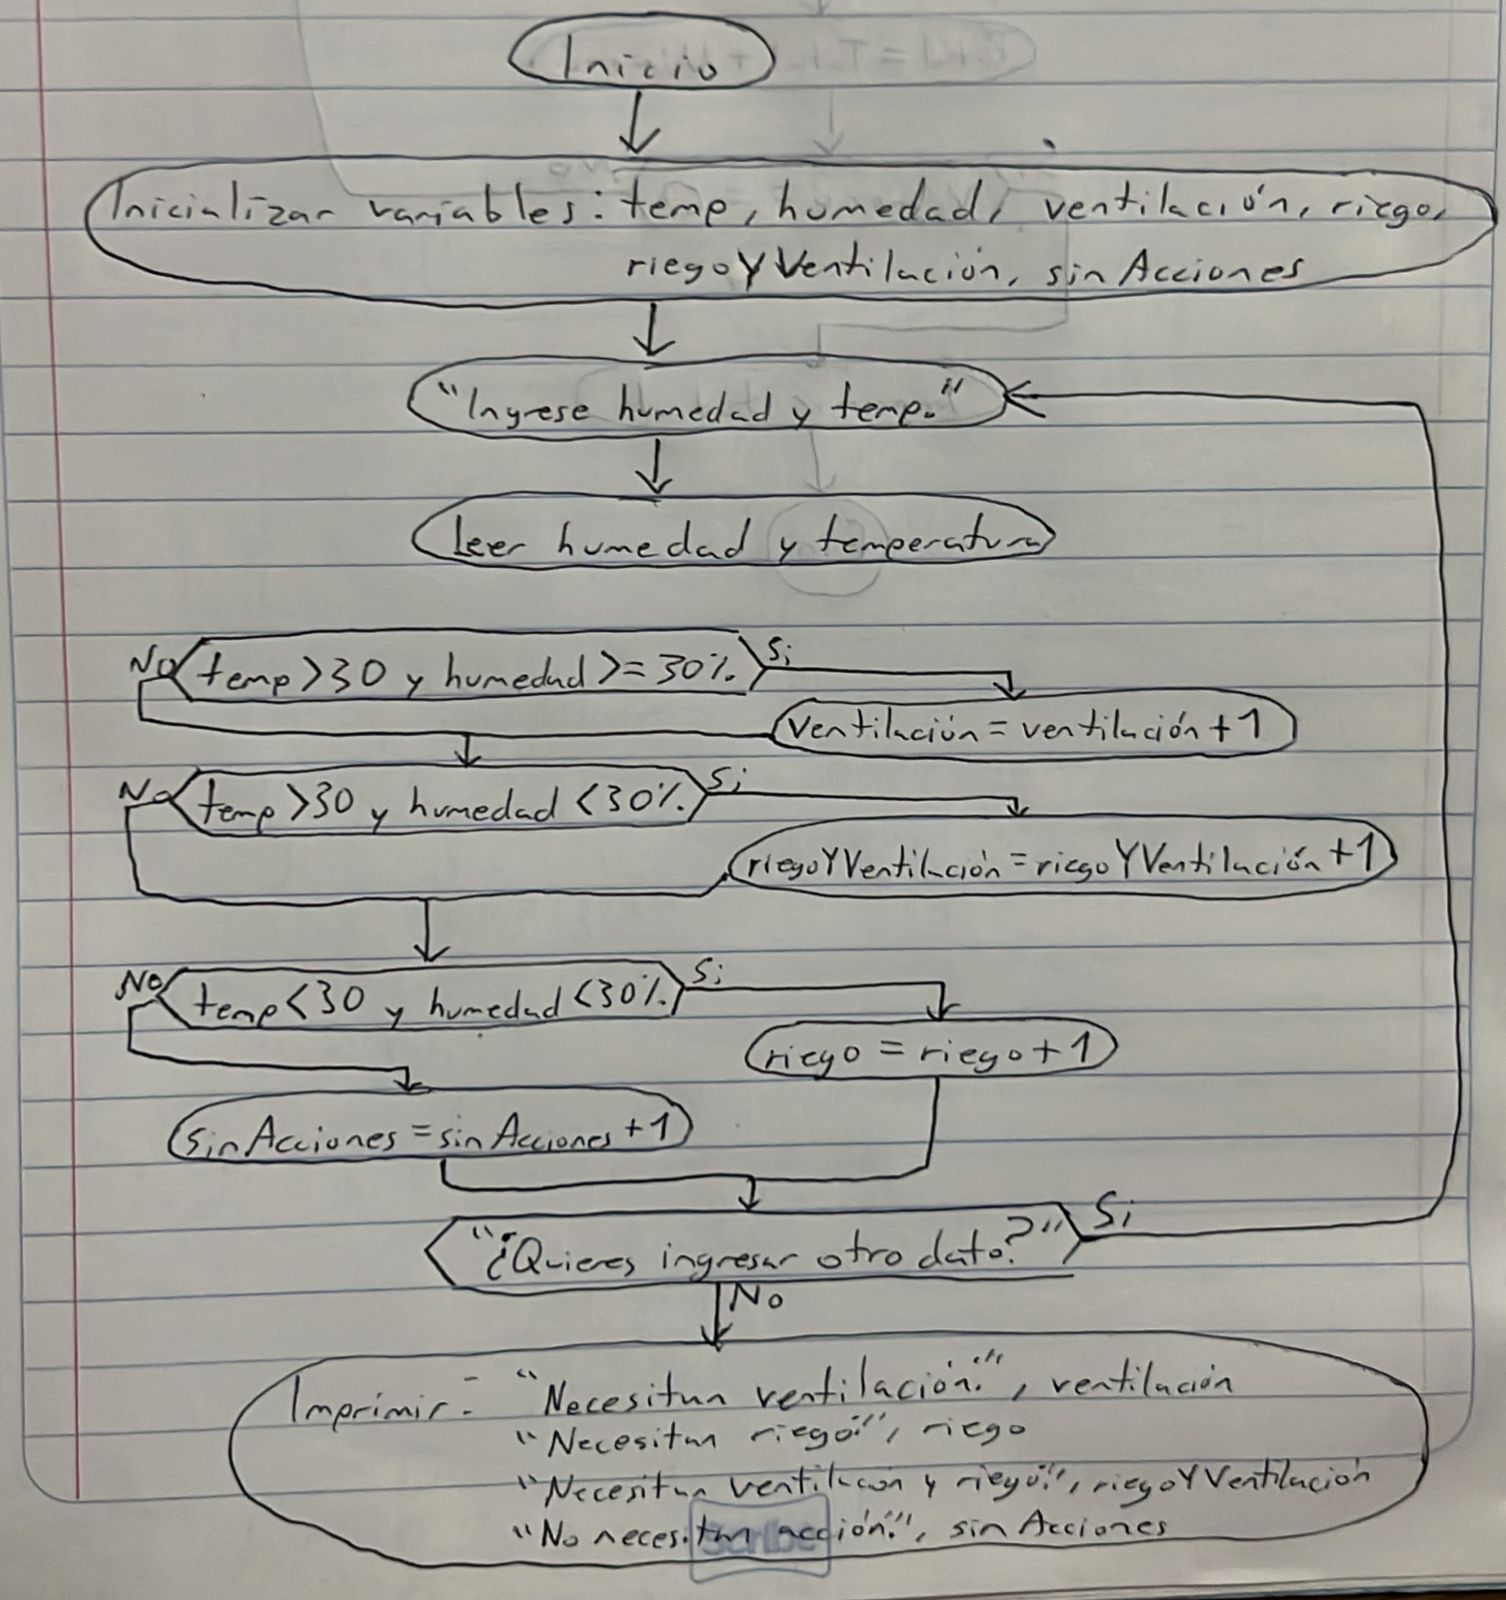 Inicio
Inicializar variables: temp, humedad, ventilación, riego,
riegoYVentilación, sinAcciones
"Ingrese humedad y temp."
Leer humedad y temperatura
No temp>30 y humedad>=30% Si
ventilación = ventilación + 1
No temp>30 y humedad <30% Si
riegoYVentilación = riegoYVentilación + 1
No temp<30 y humedad <30% Si
riego = riego + 1
sinAcciones = sinAcciones + 1
"¿Quieres ingresar otro dato?" Si
No
Imprimir: "Necesitan ventilación:", ventilación
"Necesitan riego:", riego
"Necesitan ventilacion y riego:", riegoYVentilación
"No necesitan acción:", sinAcciones
Scribe